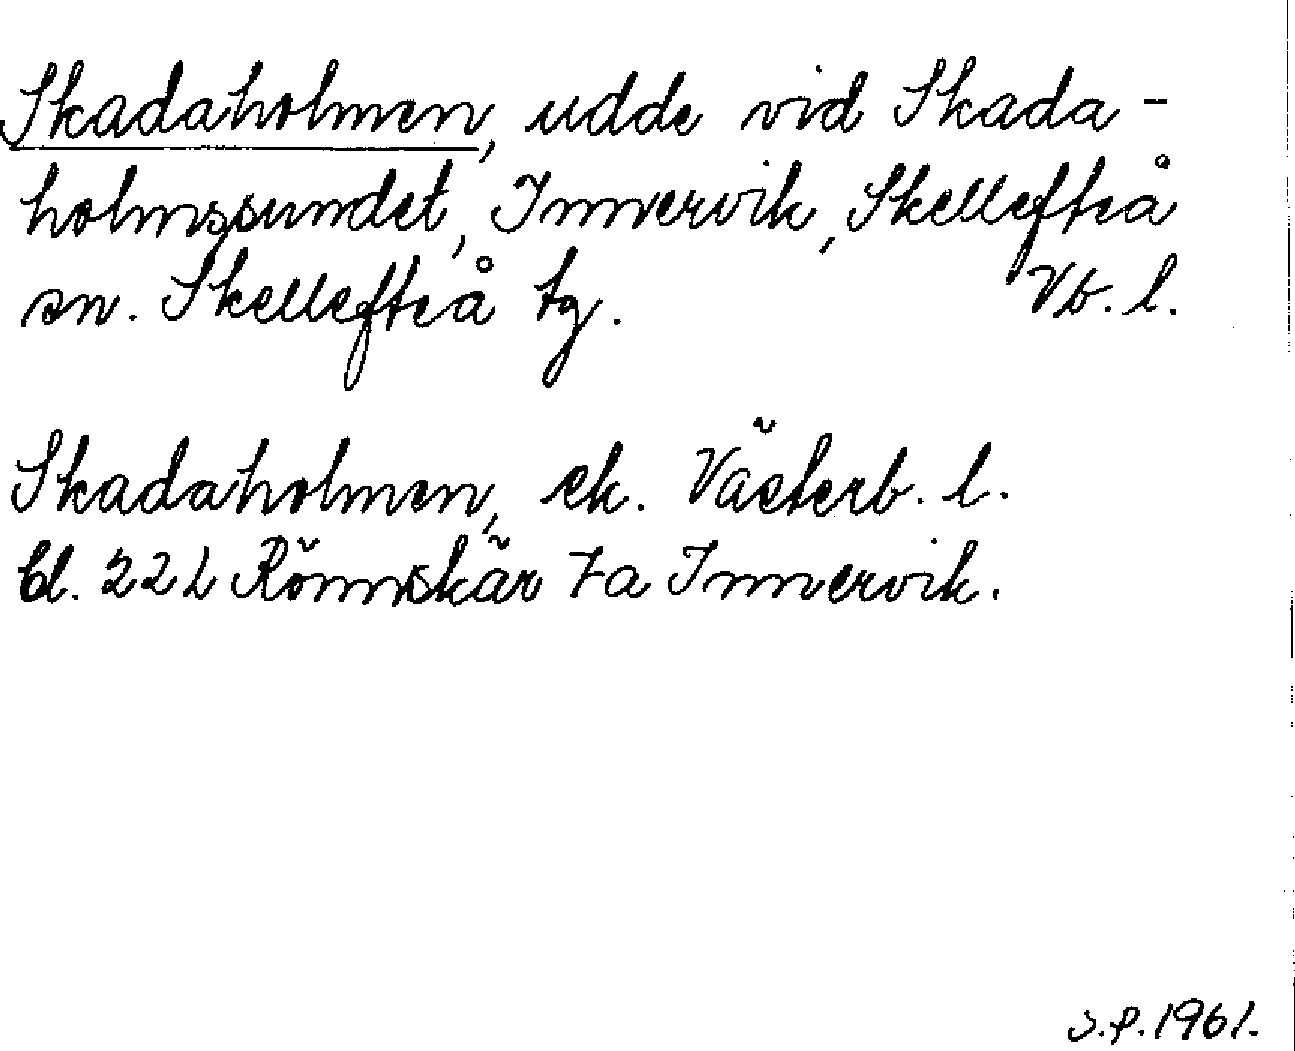 Skadaholmen, udde vid Skada-
holmssundet, Innervik, Skellefteå
sn. Skellefteå tg. Vb. l.
Skadaholmen, ek. Västerb. l.
bl. 22 L Rönnskär 7a Innervik.
S.P. 1961.